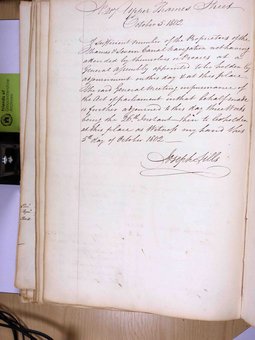 Upper Thames Street
October 5. 1812
A sufficient number of the Proprietors of the
Thames & Severn Canal Navigation not having
attended by themselves or Proxies at a
General Assembly appointed to be holden by
adjournment on this day at this place
The said General Meeting in pursuance of
the Act of Parliament in that behalf made
is further adjourned to this day three Weeks
being the 26th Instant then to be holden
at this place as Witness my hand this
5th day of October 1812
Joseph Sills
Friends of